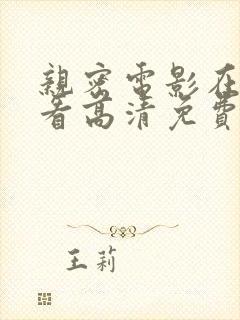 親密電影在
看高清免費
王莉